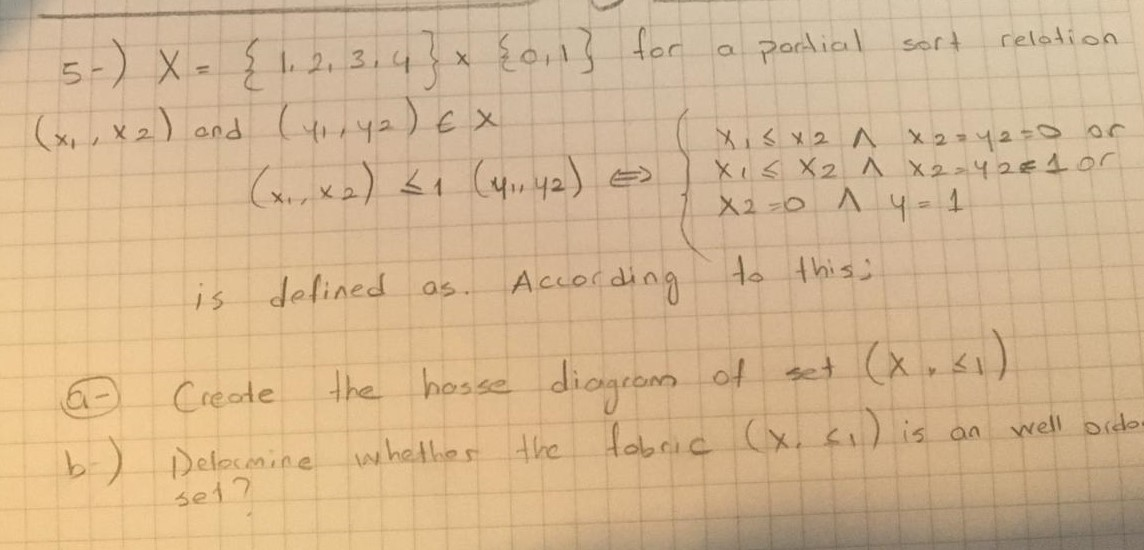 5-) X = { 1, 2, 3, 4 } x {0,1} for a partial sort relation
(x₁, x2) and (y₁, y2) ∈ X
x₁ ≤ x2 ∧ x2 = y2 = 0 or
(x₁, x2) ≤1 (y₁, y2) ⇔ { x₁ ≤ x2 ∧ x2 = y2 = 1 or
x2 = 0 ∧ y = 1
is defined as. According to this;
a- Create the hasse diagram of set (X, ≤1)
b-) Determine whether the fabric (X, ≤1) is an well orde
set?